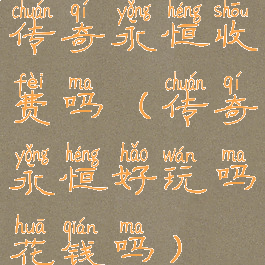 chuán qí yǒng héng shōu
传奇永恒收
fèi ma chuán qí
费吗（传奇
yǒng héng hǎo wán ma
永恒好玩吗
huā qián ma
花钱吗）